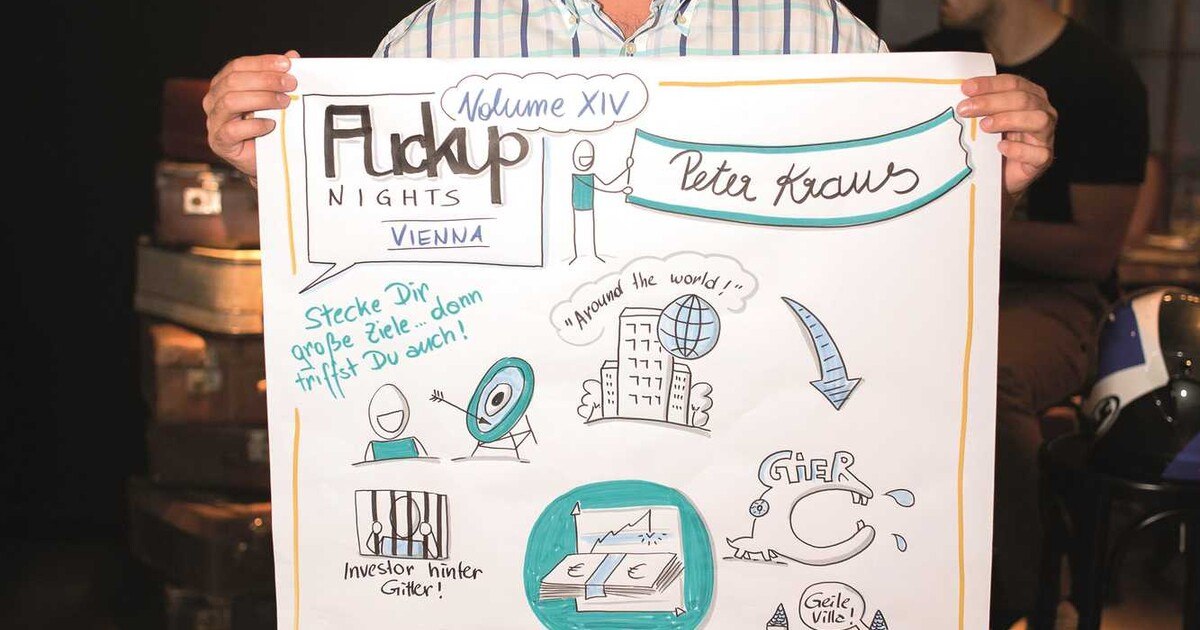 Volume XIV
Fuckup
NIGHTS
VIENNA
Peter Kraus
Stecke Dir
große Ziele... dann
triffst Du auch!
"Around the world!"
GiER
Investor hinter
Gitter!
€ €
Geile
Villa!